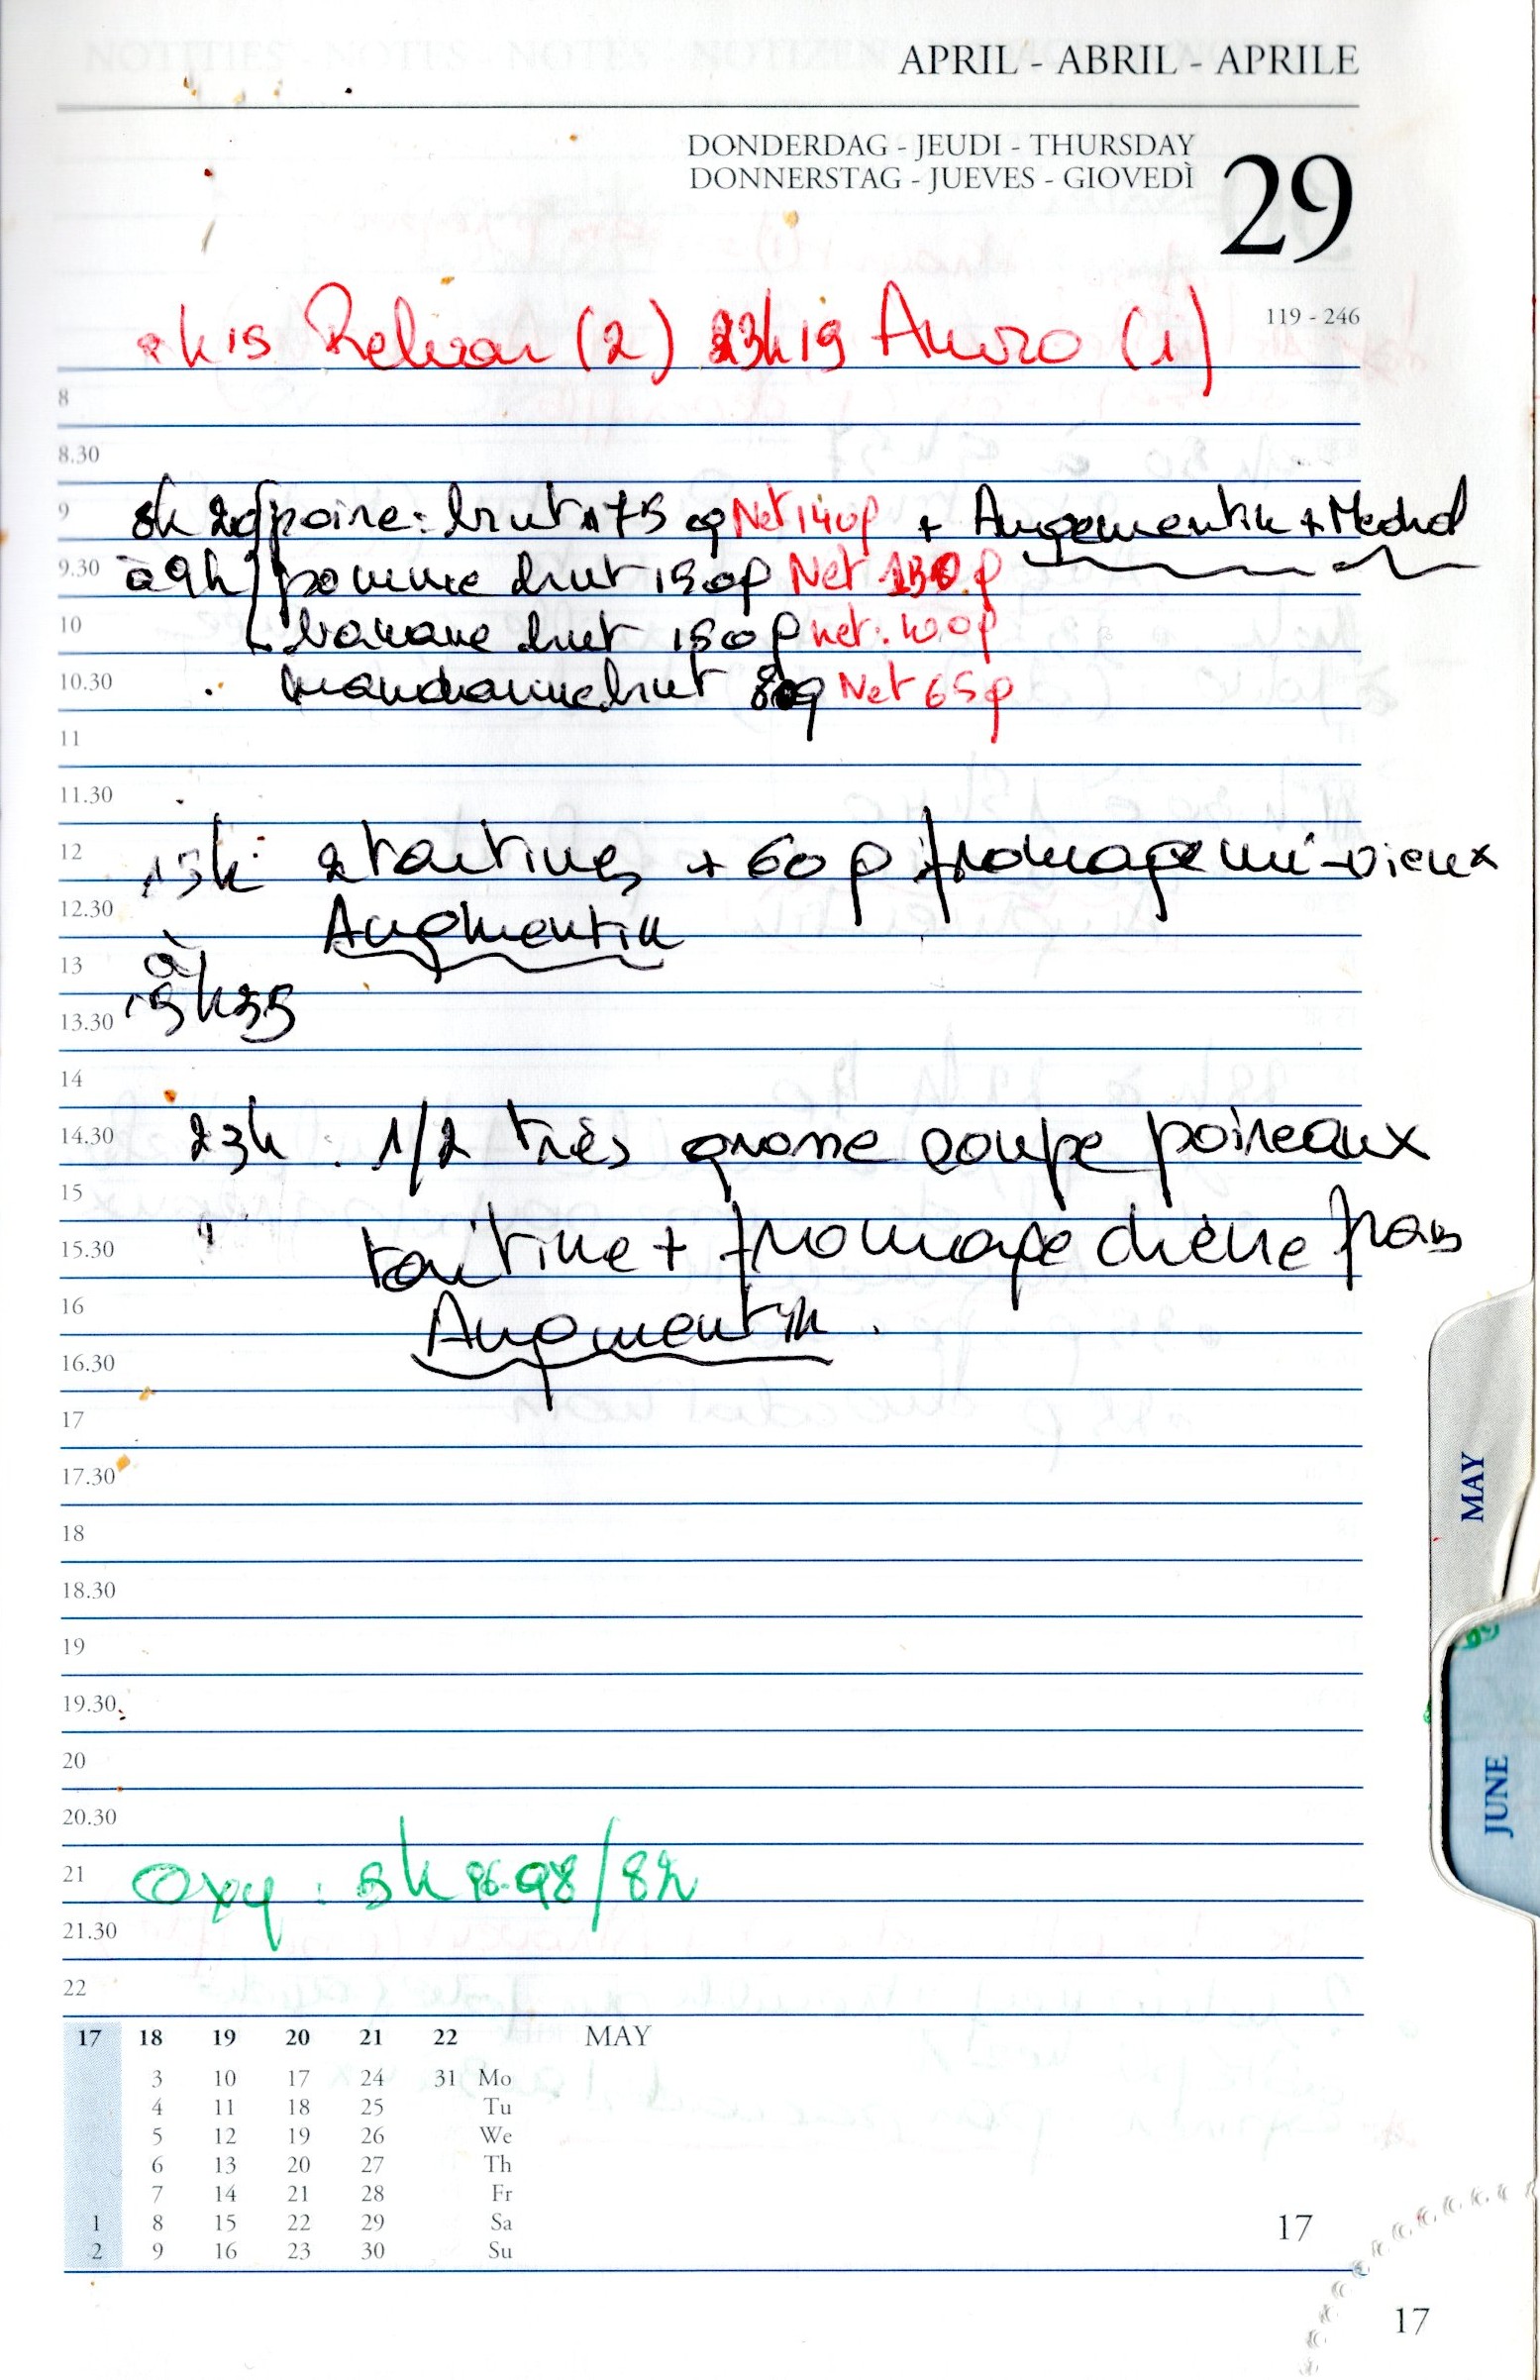 APRIL - ABRIL - APRILE
DONDERDAG - JEUDI - THURSDAY
DONNERSTAG - JUEVES - GIOVEDÌ
29
119 - 246
h 15 Relvar (2) 23h19 Anoro (1)
8
8.30
9 8h 20 poire: brut 175 g Net 140g + Augementin + Medrol
9.30 à 9h pomme brut 150g Net 130g
10 banane brut 150g net: 100g
10.30 mandarine brut 80g Net 65g
11
11.30
12 15h: 2 tartines + 60 g fromage mi-vieux
12.30 Augmentin
13 à
13.30 15h35
14
14.30 23h : 1/2 très grosse soupe poireaux
15
15.30 " tartine + fromage chèvre frais
16 Augmentin.
16.30
17
17.30
18
18.30
19
19.30
20
20.30
21 Oxy : 8h 96-98/82
21.30
22
17 18 19 20 21 22 MAY
3 10 17 24 31 Mo
4 11 18 25 Tu
5 12 19 26 We
6 13 20 27 Th
7 14 21 28 Fr
1 8 15 22 29 Sa
2 9 16 23 30 Su
17
17
MAY
JUNE